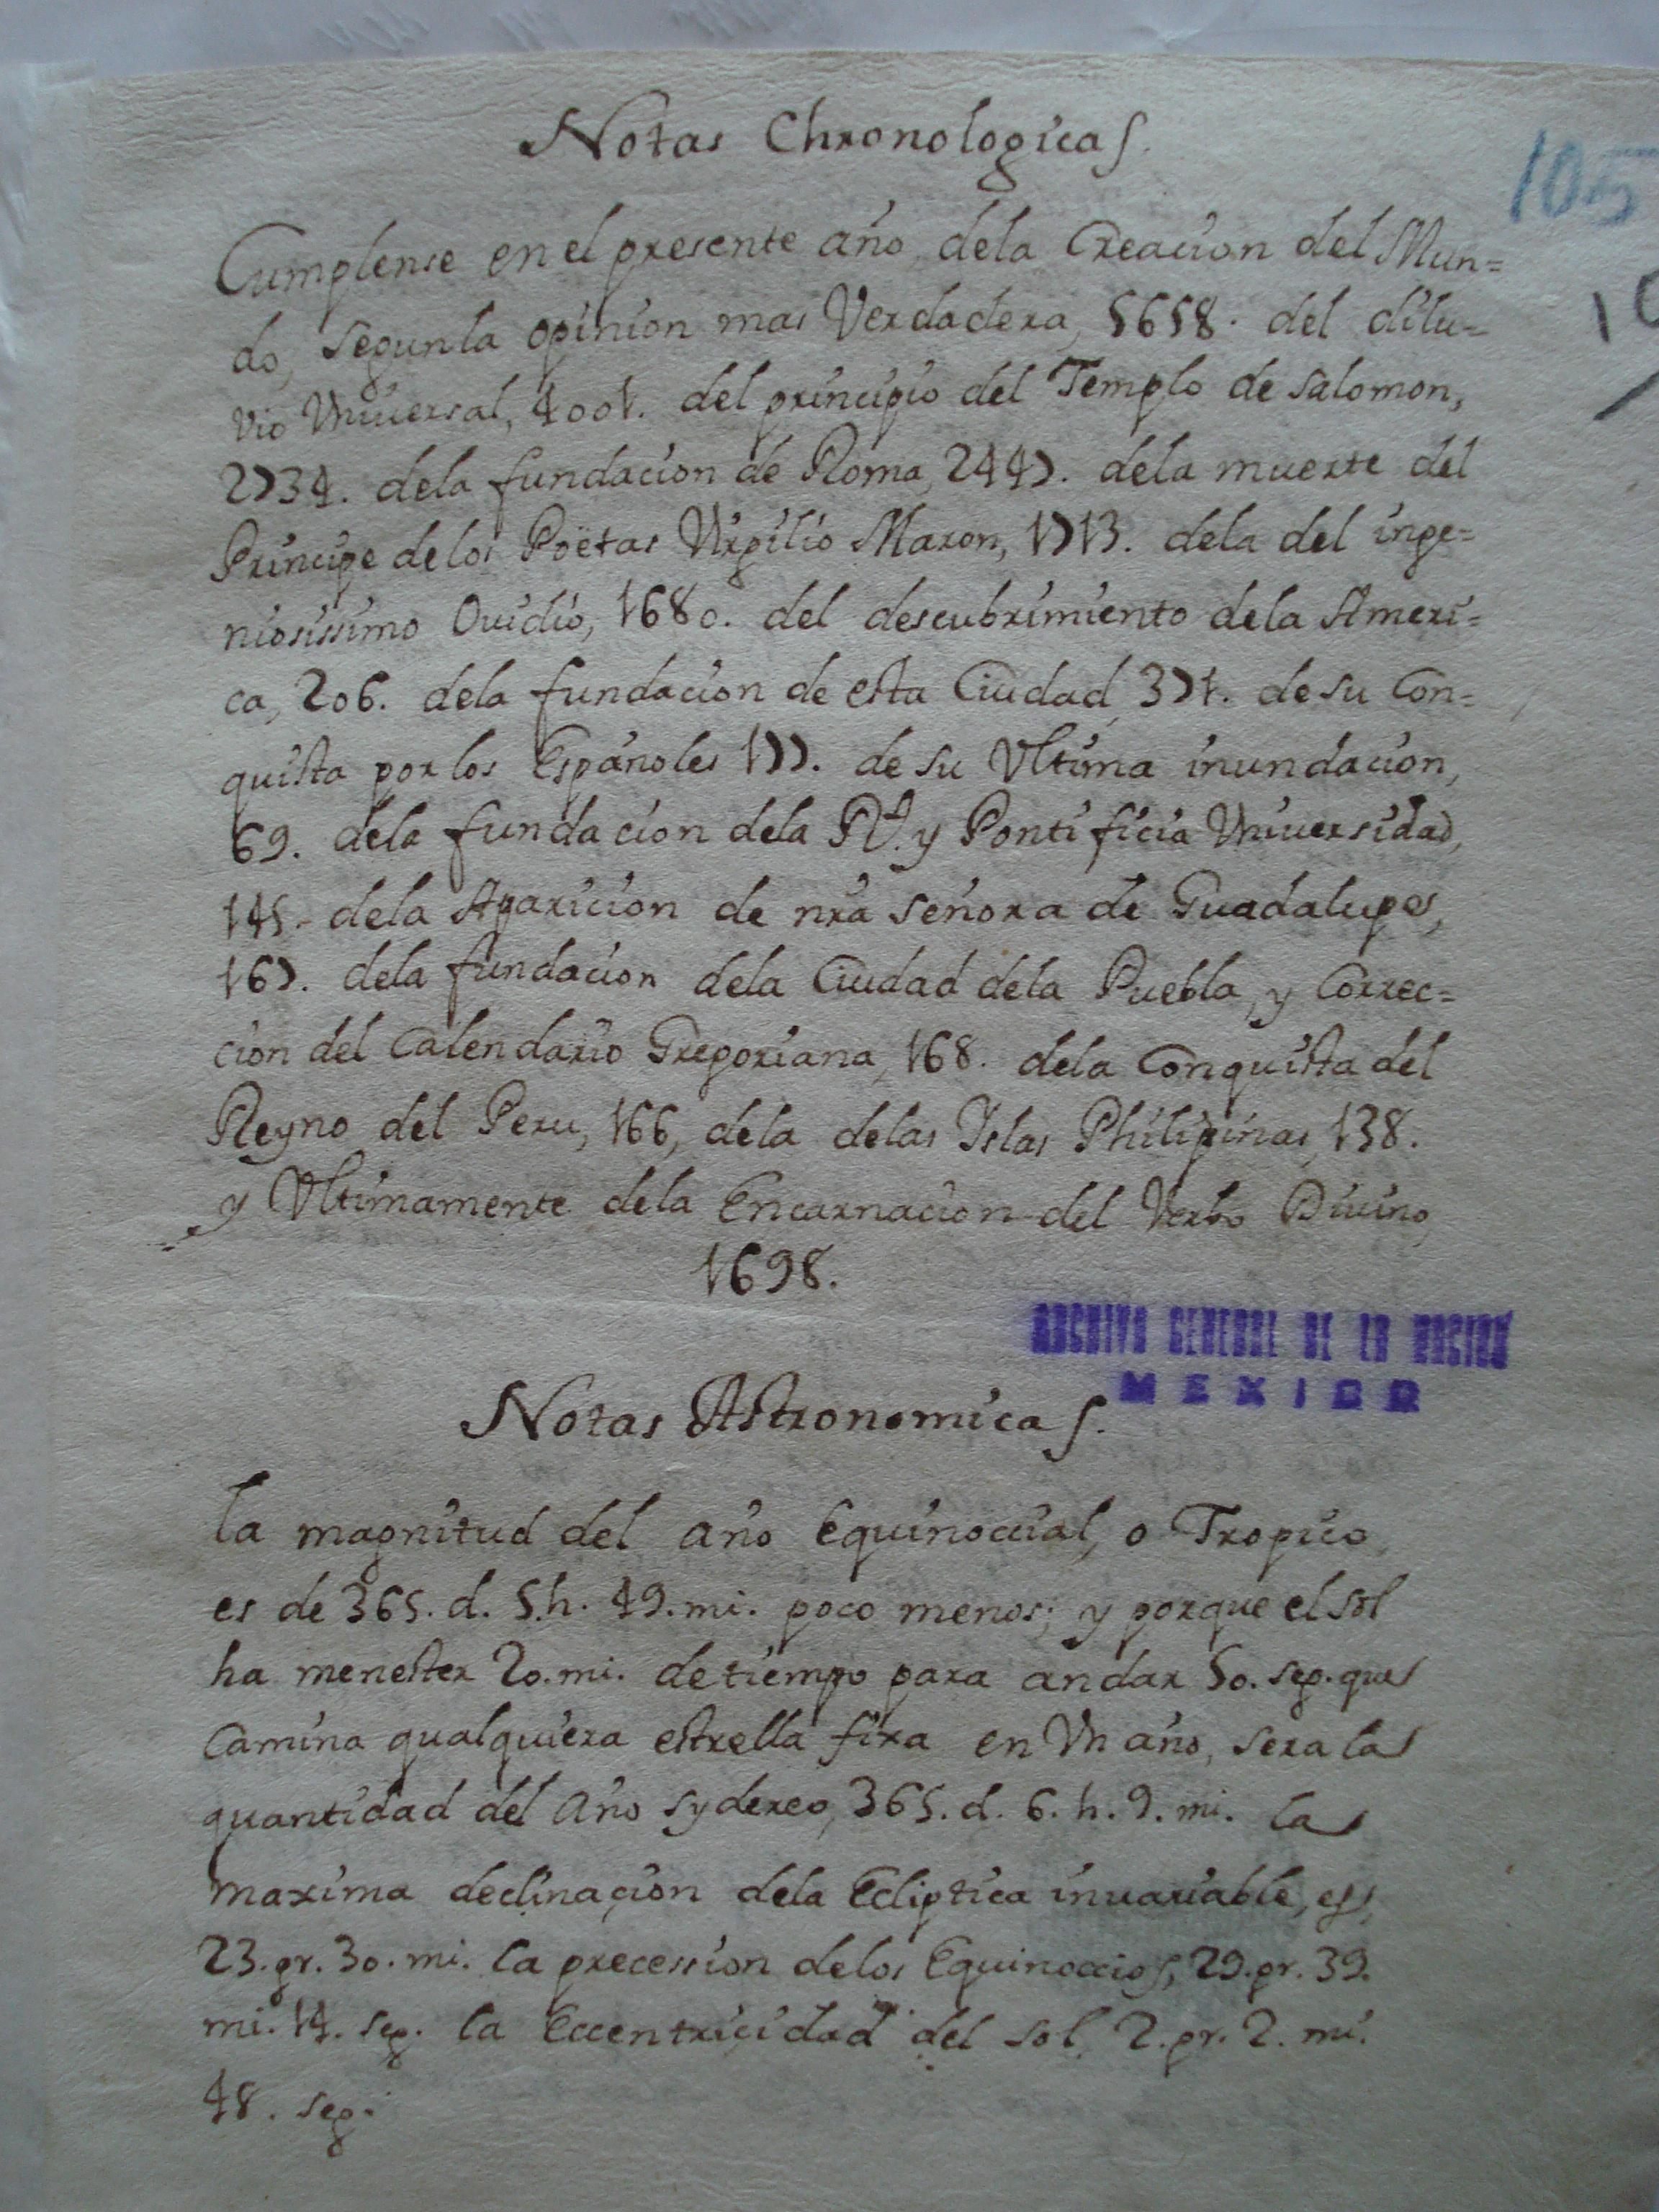 Notas Chronologicas.
105
Cumplense en el presente año, dela Creacion del Mun=
do, segun la opinion mas Verdadera, 5658. del dilu=
vio Vniuersal, 4001. del principio del Templo de Salomon,
2734. dela fundacion de Roma, 2447. dela muerte del
Principe delos Poëtas Virgilio Maron, 1713. dela del inge=
niosissimo Ouidio, 1680. del descubrimiento dela Ameri=
ca, 206. dela fundacion de esta Ciudad, 371. de su Con=
quista por los Españoles 177. de su Vltima inundacion,
69. dela fundacion dela Rl. y Pontificia Vniuersidad,
145. dela Aparicion de nra señora de Guadalupe,
167. dela fundacion dela Ciudad dela Puebla, y Correc=
cion del Calendario Gregoriana, 168. dela Conquista del
Reyno del Peru, 166, dela delas Islas Philipinas, 138.
y Vltimamente dela Encarnacion del Verbo Diuino,
1698.
ARCHIVO GENERAL DE LA NACION
MEXICO
Notas Astronomicas.
la magnitud del año Equinoccial, o Tropico,
es de 365. d. 5.h. 49. mi. poco menos; y porque el sol
ha menester 20. mi. de tiempo para andar 50. seg. que
Camina qualquiera estrella fixa en Vn año, sera la
quantidad del Año sydereo, 365. d. 6. h. 9. mi. la
maxima declinacion dela Ecliptica inuariable, es,
23. gr. 30. mi. la precession delos Equinoccios, 29. gr. 39.
mi. 14. seg. la Eccentricidad del sol, 2. gr. 2. mi.
48. seg.